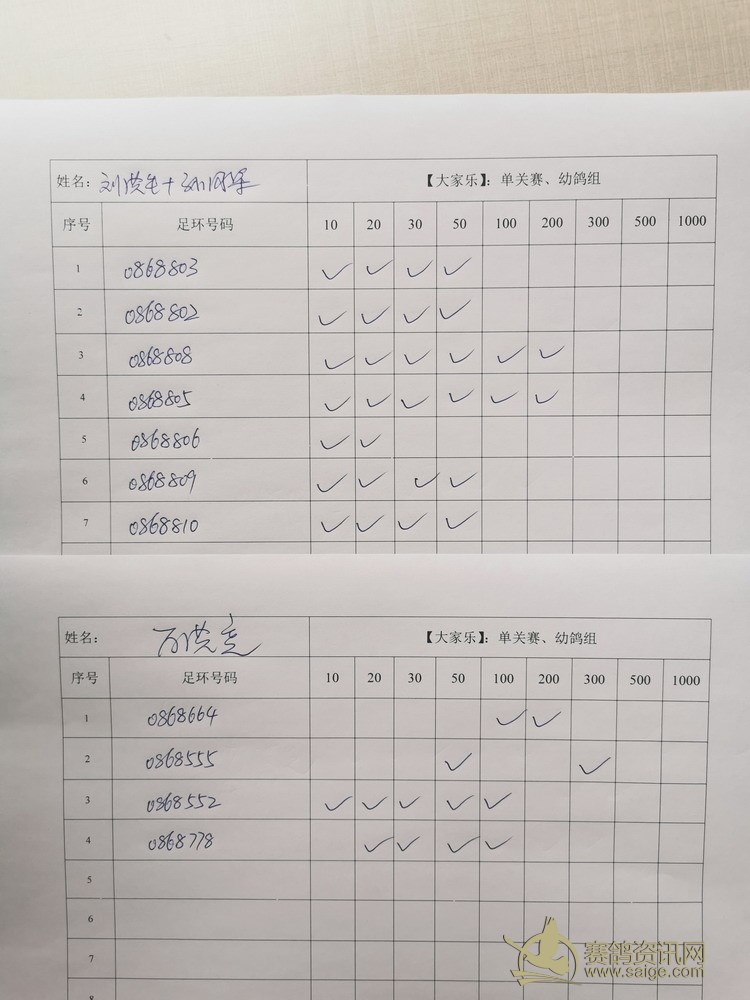 姓名： 【大家乐】：单关赛、幼鸽组
序号 足环号码 10 20 30 50 100 200 300 500 1000
1 0868803 ✓ ✓ ✓ ✓
2 0868802 ✓ ✓ ✓ ✓
3 0868808 ✓ ✓ ✓ ✓ ✓ ✓
4 0868805 ✓ ✓ ✓ ✓ ✓ ✓
5 0868806 ✓ ✓
6 0868809 ✓ ✓ ✓ ✓
7 0868810 ✓ ✓ ✓ ✓
姓名： 【大家乐】：单关赛、幼鸽组
序号 足环号码 10 20 30 50 100 200 300 500 1000
1 0868664 ✓ ✓
2 0868555 ✓ ✓
3 0868552 ✓ ✓ ✓ ✓ ✓
4 0868778 ✓ ✓ ✓ ✓
5
6
7
8
赛鸽资讯网
www.saige.com